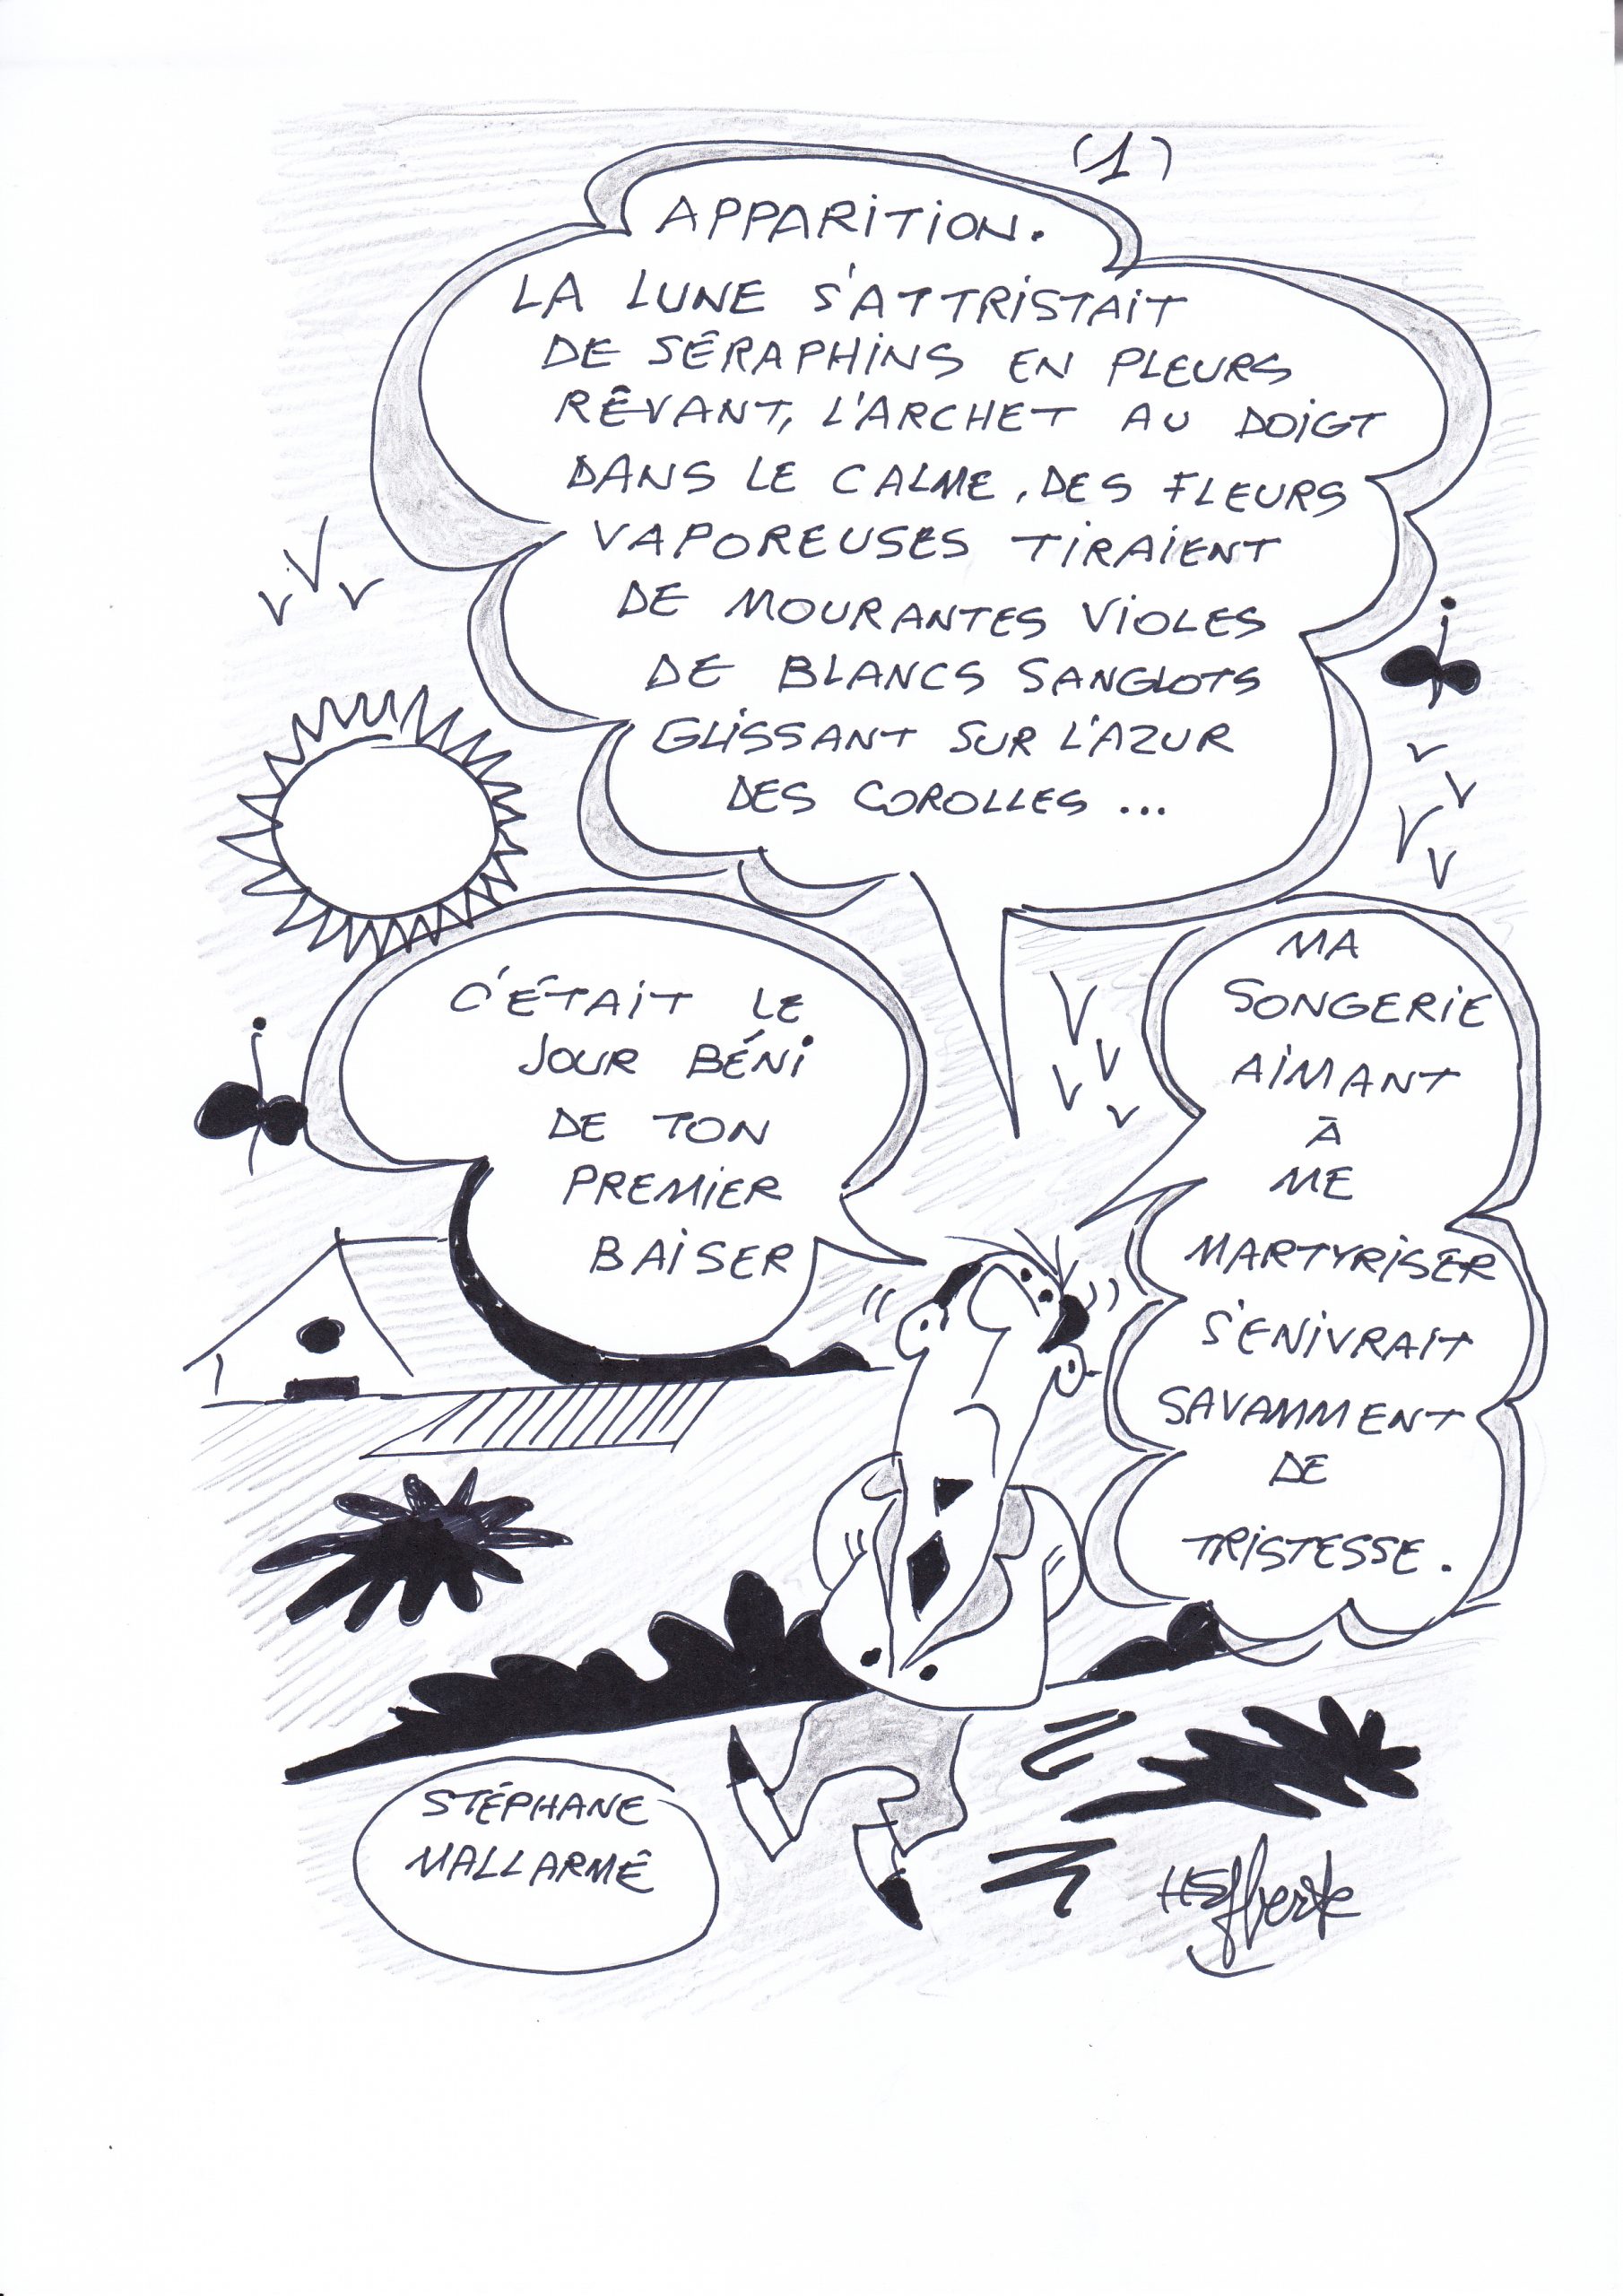 (1)
APPARITION.
LA LUNE S'ATTRISTAIT
DE SÊRAPHINS EN PLEURS
RÊVANT, L'ARCHET AU DOIGT
DANS LE CALME, DES FLEURS
VAPOREUSES TIRAIENT
DE MOURANTES VIOLES
DE BLANCS SANGLOTS
GLISSANT SUR L'AZUR
DES COROLLES ...
C'ÉTAIT LE
JOUR BÉNI
DE TON
PREMIER
BAISER
MA
SONGERIE
AIMANT
À
ME
MARTYRISER
S'ENIVRAIT
SAVAMMENT
DE
TRISTESSE.
STÉPHANE
MALLARMÊ